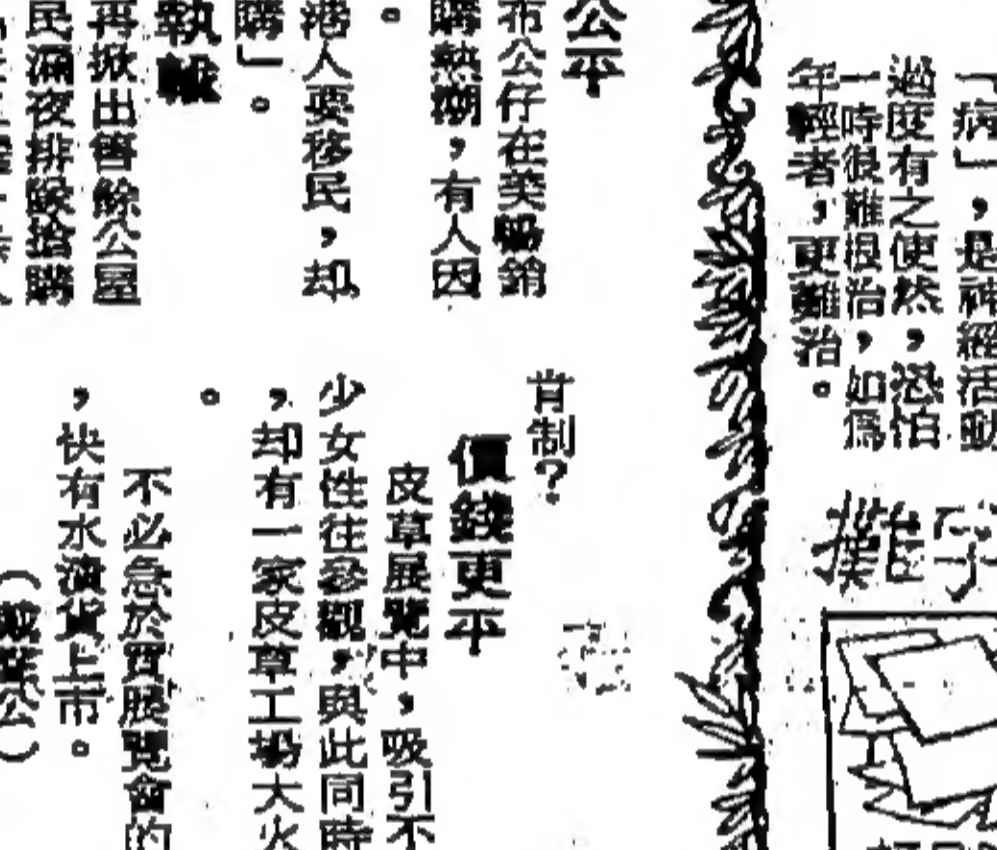 「病」，是神經活動
過度有之使然，恐怕
一時很難根治，如為
年輕者，更難治。
攤字
公平
布公仔在美暢銷
購熱潮，有人因
。
港人要移民，却
購」。
執輸
再掀出售餘公屋
民漏夜排隊搶購
肯制？
價錢更平
皮草展覽中，吸引不
少女性往參觀，與此同時
，却有一家皮草工場大火
。
不必急於買展覽會的
，快有水漬貨上市。